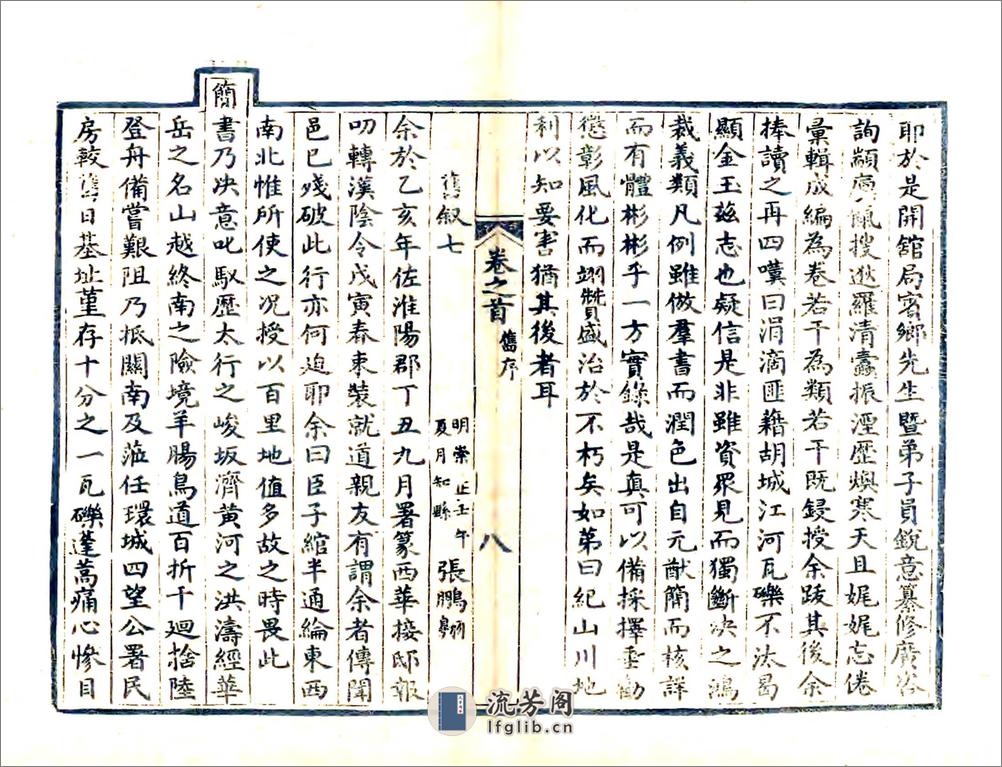 耶於是開舘局賓鄉先生暨弟子員銳意纂修廣咨
詢顓廣鼠搜逖羅清蠹振湮歷燠寒天且娓娓忘倦
彙輯成編為卷若干為類若干既録授余跋其後余
捧讀之再四嘆曰涓滴匪藉胡城江河瓦礫不汰曷
顯金玉兹志也疑信是非雖資眾見而獨斷决之鴻
裁義類凡例雖倣羣書而潤色出自元猷簡而核詳
而有體彬彬乎一方實錄哉是真可以備採擇垂勸
懲彰風化而翊贊盛治於不朽矣如第曰紀山川地
利以知要害猶其後者耳
卷之首 舊序 八
舊叙七
明崇正壬午夏月知縣 張鵬翱
余於乙亥年佐淮陽郡丁丑九月署篆西華接邸報
叨轉漢陰令戊寅春束裝就道親友有謂余者傳聞
邑已殘破此行亦何迫耶余曰臣子綰半通綸東西
南北惟所使之况授以百里地值多故之時畏此
簡書乃决意叱馭歷太行之峻坂濟黄河之洪濤經華
岳之名山越終南之險境羊腸鳥道百折千廻捨陸
登舟備嘗艱阻乃抵關南及蒞任環城四望公署民
房較舊日基址堇存十分之一瓦礫蓬蒿痛心慘目
流芳阁
lfglib.cn